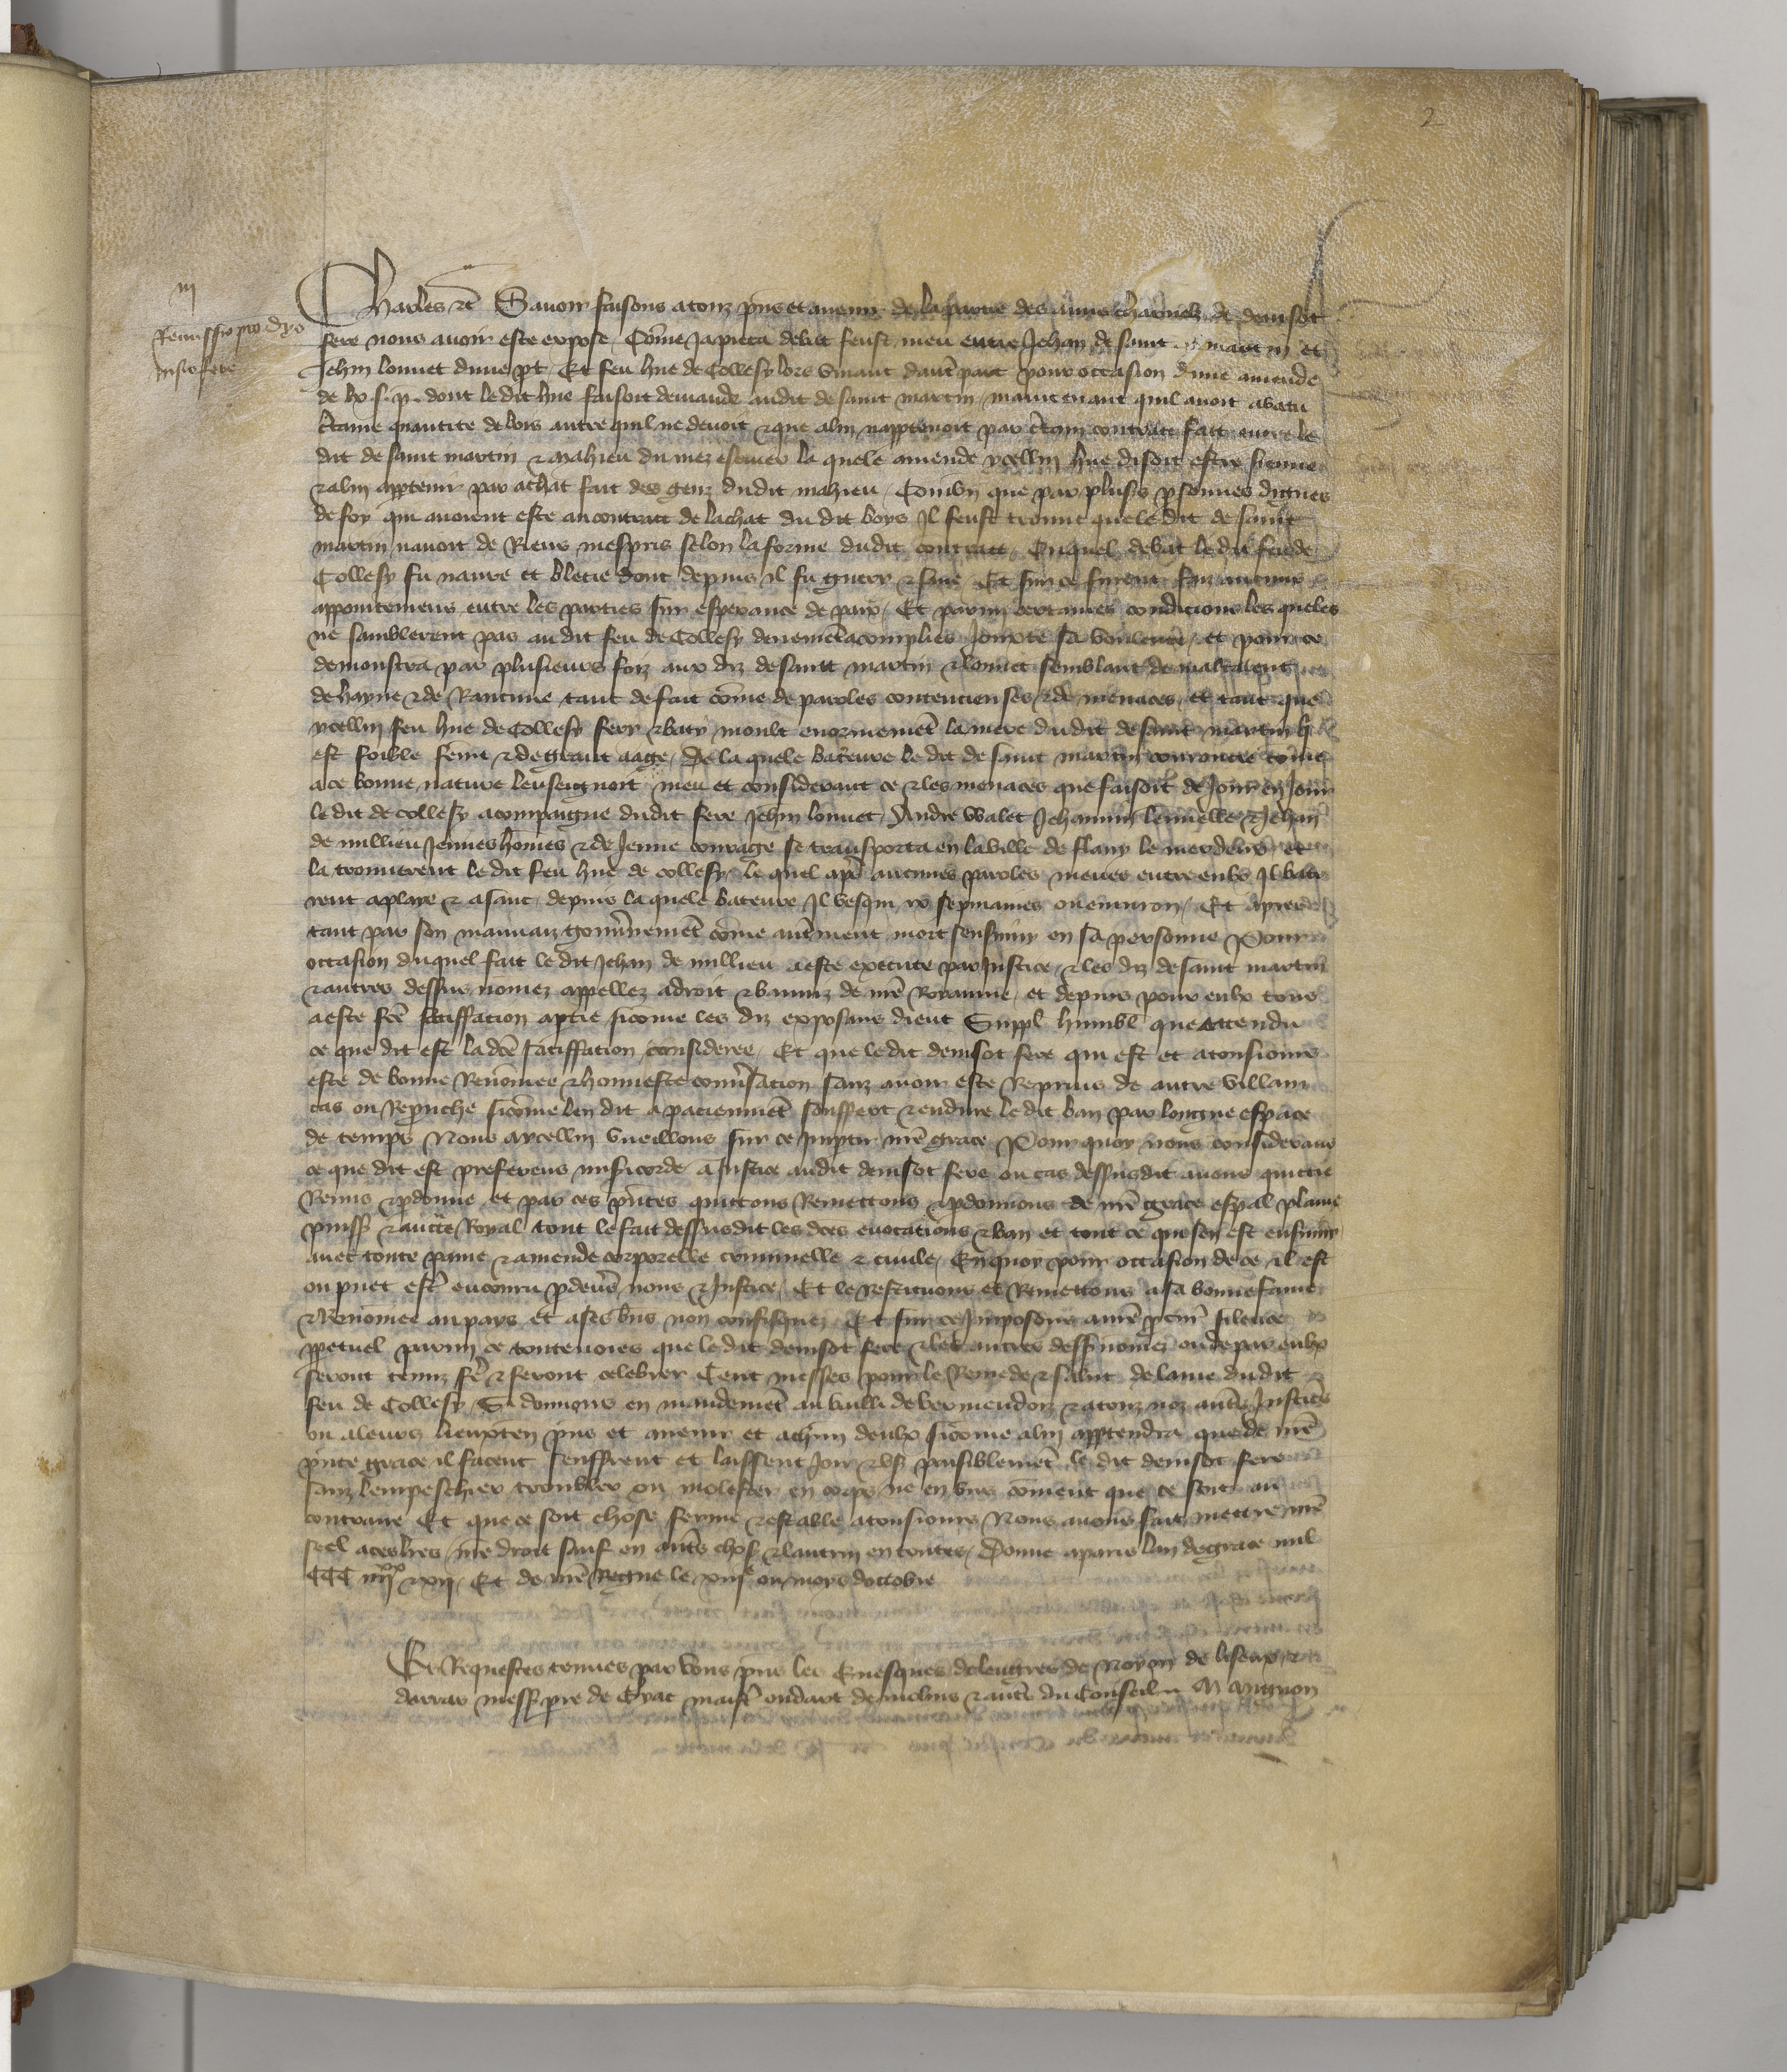 2
iii
Remissio pro Dyo
nisio fere
Charles etc Savoir faisons a touz pns et avenir de la partie des amis charnelz de denisot
fere nous avoir este expose Come ja pieca debat feust meu entre Jehan de saint martin et
Jehin lonuet dune pt Et feu hue de Collesy lors vivant dautre part pour occasion dune amende
de lx s. p. dont ledit hue faisoit demande audit de saint martin maintenant quil avoit abatu
ctaine quantite de bois autre quil ne devoit et que a lui napptenoit par ctain contract fait entre le
dit de saint martin et Mahieu du mez escuier la quele amende ycellui hue disoit estre sienne
et a lui apptenir par achat fait des genz dudit mahieu Combn que par plus psonnes dignes
de foy qui avoient este au contract de lachat du dit boys Il feust trouve que le dit de saint
martin navoit de Riens mespris selon la forme dudit contract Ouquel debat le dit feu de
Collesy fu navre et blecie dont depuis il fu guery et sane Et sur ce furent faiz aucuns
appointemens entre les parties sur esperance de paix Et parmi certaines condicions les queles
ne samblerent pas au dit feu de Collesy deuemet acomplies Jouxte sa voulente et pour ce
demonstra par plusieurs foiz aux diz de saint martin et lonuet semblant de maltalent
de hayne et de Rancune tant de fait come de paroles contencieuses et de menaces et tant que
ycellui feu hue de Collesy fery et baty moult enormemet la mere dudit de saint martin q
est foible feme et de grant aage De la quele bateure le dit de saint martin courroucie come
a ce bonne nature lenseignoit meu et considerant ce et les menaces que faisoit de Jour en Jour
le dit de collesy acompaigne dudit fere Jehin lonuet Andre Walet Jehannin lenuelle et Jehan
de nullieu Jeunes homes et de Jeune courage se transporta en la ville de flavy le merdeux et
la trouverent le dit feu hue de collesy le quel apres aucunes paroles meues entre eulx Il bati
rent a playe et a sanc depuis la quele bateure Il vesqui ix sepmaines ou environ Et apres
tant par son mauvaiz gouvnement come autrement mort sensuivy en sa personne Pour
occasion duquel fait le dit Jehan de nullieu a este execute par Justice et les diz de saint martin
et autres dessus nomez appellez a droit et banniz de nre Royaume et depuis pour eulx tous
a este fce satiffacion a ptie sicome les diz exposans dient Suppl humbl que attendu
ce que dit est la dce satiffacion consideree Et que le dit denisot fere qui est et a tousiours
este de bonne Renomee et honneste convsacion sanz avoir este Reprins de autre villain
cas ou Repruche sicome len dit a paciemmet souffert et endure le dit ban par longue espace
de temps Nous a ycellui vueillons sur ce Impartir nre grace Pour quoy nous considerans
ce que dit est preferens misicorde a Justice audit denisot fere ou cas dessusdit avons quictie
Remis et pdonne et par ces pntes quictons Remettons et pdonnons de nre grace espal plaine
puiss et aucte Royal tout le fait dessusdit les dces evocations et ban et tout ce qui sen est ensuivy
avec toute peine et amende corporelle criminelle et civile En quoy pour occasion de ce il est
ou puet est encouru pdevs nous et Justice Et le restituons et Remettons a sa bonne fame
et Renomee au pays et a ses bns non confisquez Et sur ce Imposons a nre pcur silence
ppetuel parmi ce toutevoies que le dit denisot fere et les autres dess nomez ou de par eulx
seront tenuz fe et feront celebrer Cent messes pour le Remede et salut de lame dudit
feu de Collesy Si donnons en mandemet au bailli de vermendoiz et a touz noz autres Justices
ou a leurs lieuxten pns et avenir et a chun deulx sicome a lui apptendra que de nre
pnte grace il facent seuffrent et laissent Joir et us paisiblemet le dit denisot fere
sanz lempeschier troubler ou molester en corps ne en bns coment que ce soit au
contraire Et que ce soit chose ferme et estable a tousiours Nous avons fait mettre nre
seel a ces lres nre droit sauf en autres choss et lautrui en toutes Donne a paris lan de grace mil
CCC iiiixx et xii Et de nre Regne le xiiie ou moys doctobre
Es Requestes tenues par vous pns les Evesques de lengres de Noyon de liseux et
darras mess pre de Gyac maist oudart de molins et autres du Conseil M Mignon